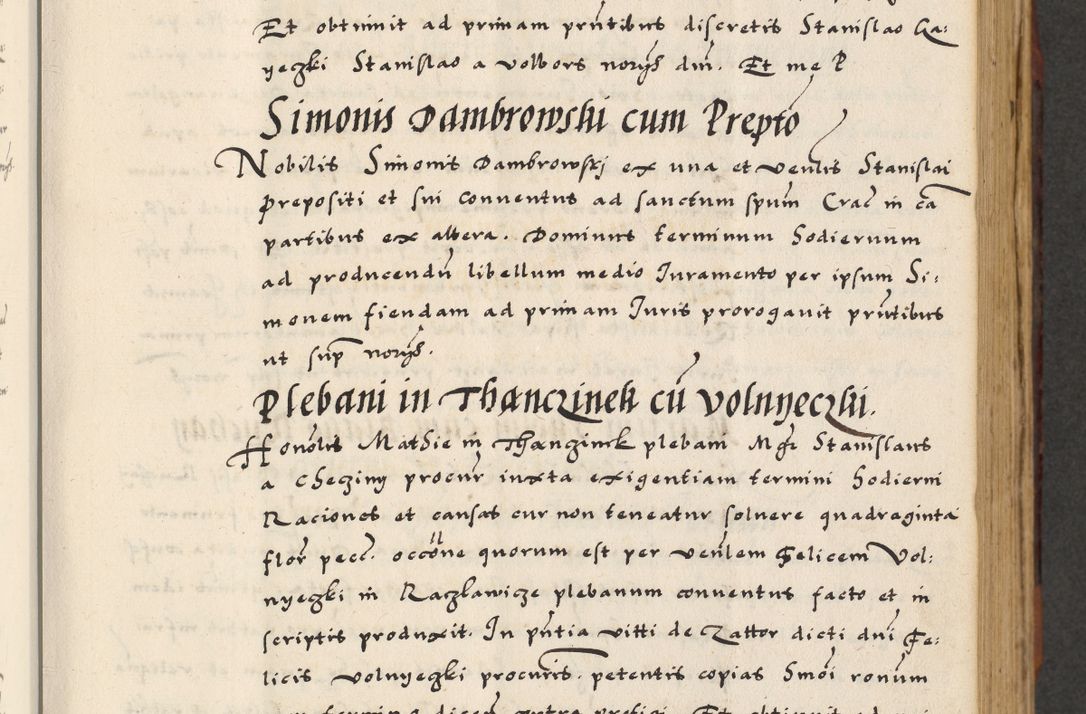 Et obtinuit ad primam pñtibus discretis Stanislao Ga:
yeczki Stanislao a Volbors norijs dni. Et me P
Simonis Dambrowski cum Prepto
Nobilis Simonis Dambrowskj ex una et venlis Stanislai
Prepositi et sui conventus ad sanctum spum Crac in ca
partibus ex altera. Dominus terminum hodiernum
ad producendu libellum medio Iuramento per ipsum Si:
monem fiendam ad primam Iuris prorogavit pñtibus
ut sup norijs.
Plebani in Thanczinek cu Volnyeczki.
Honolis Mathie in Thanczinek plebani Mgr Stanislaus
a Checziny procur iuxta exigentiam termini hodierni
Raciones et causas cur non teneatur solvere quadraginta
flor pecc. occone quorum est per venlem Felicem Vol:
nyeczki in Raczlawicze plebanum conventus facto et in
scriptis produxit. In pñtia vitti de Zattor dicti dni Fe:
licis Volnyeczki procuris. petentis copias Smoi ronum